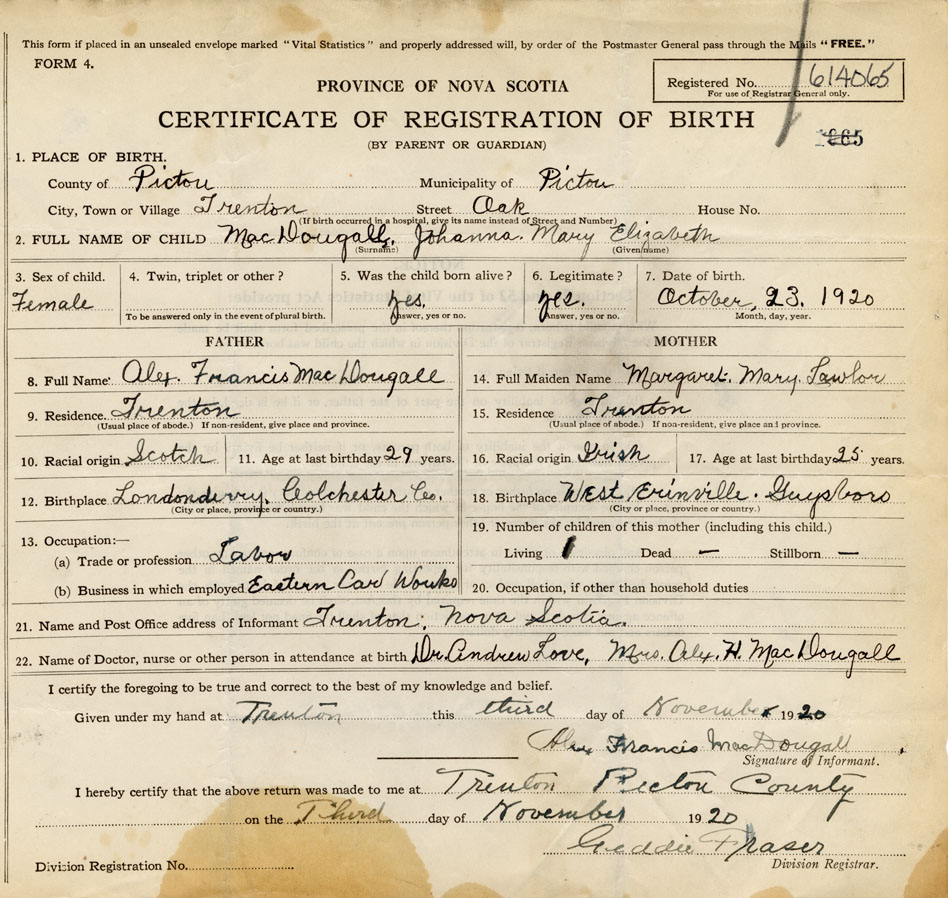 This form if placed in an unsealed envelope marked "Vital Statistics" and properly addressed will, by order of the Postmaster General pass through the Mails "FREE."
FORM 4.
Registered No. 614065
For use of Registrar General only.
PROVINCE OF NOVA SCOTIA
CERTIFICATE OF REGISTRATION OF BIRTH
(BY PARENT OR GUARDIAN)
1. PLACE OF BIRTH.
County of Pictou Municipality of Pictou
City, Town or Village Trenton Street Oak House No.
(If birth occurred in a hospital, give its name instead of Street and Number)
2. FULL NAME OF CHILD MacDougall, Johanna. Mary Elizabeth
(Surname) (Given name)
3. Sex of child. 4. Twin, triplet or other? 5. Was the child born alive? 6. Legitimate? 7. Date of birth.
Female yes. yes. October, 23. 1920
To be answered only in the event of plural birth. Answer, yes or no. Answer, yes or no. Month, day, year.
FATHER MOTHER
8. Full Name Alex. Francis MacDougall 14. Full Maiden Name Margaret. Mary. Lawlor
9. Residence. Trenton 15. Residence Trenton
(Usual place of abode.) If non-resident, give place and province. (Usual place of abode.) If non-resident, give place and province.
10. Racial origin Scotch 11. Age at last birthday 29 years. 16. Racial origin Irish 17. Age at last birthday 25 years.
12. Birthplace Londonderry, Colchester Co. 18. Birthplace West Erinville. Guysboro
(City or place, province or country.) (City or place, province or country.)
19. Number of children of this mother (including this child.)
13. Occupation:—
Living 1 Dead — Stillborn —
(a) Trade or profession Labor
(b) Business in which employed Eastern Car Works 20. Occupation, if other than household duties
21. Name and Post Office address of Informant Trenton, Nova Scotia.
22. Name of Doctor, nurse or other person in attendance at birth Dr. Andrew Love, Mrs. Alex. H. MacDougall
I certify the foregoing to be true and correct to the best of my knowledge and belief.
Given under my hand at Trenton this third day of November 1920
Alex Francis MacDougall
Signature of Informant.
I hereby certify that the above return was made to me at Trenton Pictou County
on the Third day of November 1920
Geddie Fraser
Division Registration No. Division Registrar.